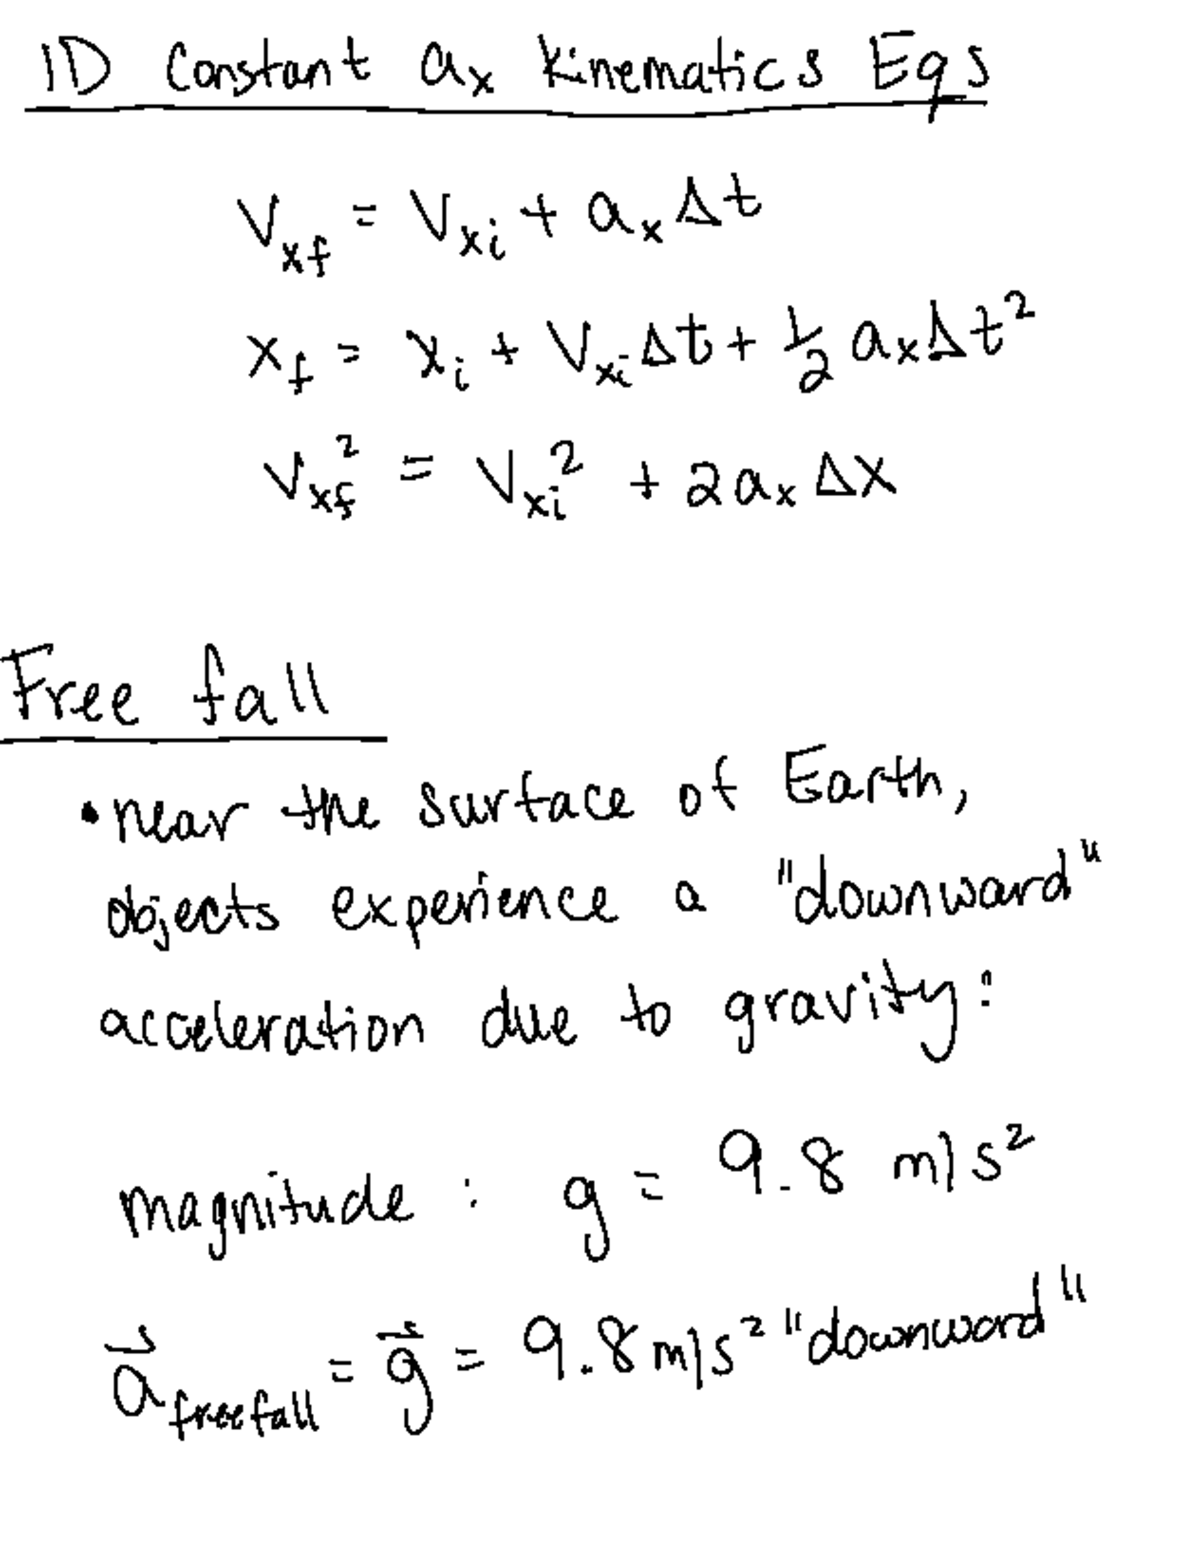 1D Constant aₓ Kinematics Eqs
Vₓf = Vₓi + aₓ Δt
x_f = x_i + Vₓi Δt + ½ aₓ Δt²
Vₓf² = Vₓi² + 2aₓ Δx
Free fall
• near the surface of Earth,
objects experience a "downward"
acceleration due to gravity:
magnitude : g = 9.8 m/s²
a⃗ freefall = g⃗ = 9.8 m/s² "downward"